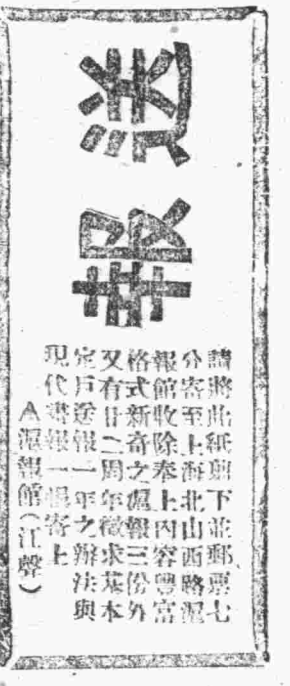 送報
請將此紙剪下並郵票七
分寄至上海北山西路滬
報館收除奉上內容豐富
格式新奇之滬報三份外
又有廿二周年徵求基本
定戶送報一年之辦法與
現代報一寄上
A滬報館(江聲)